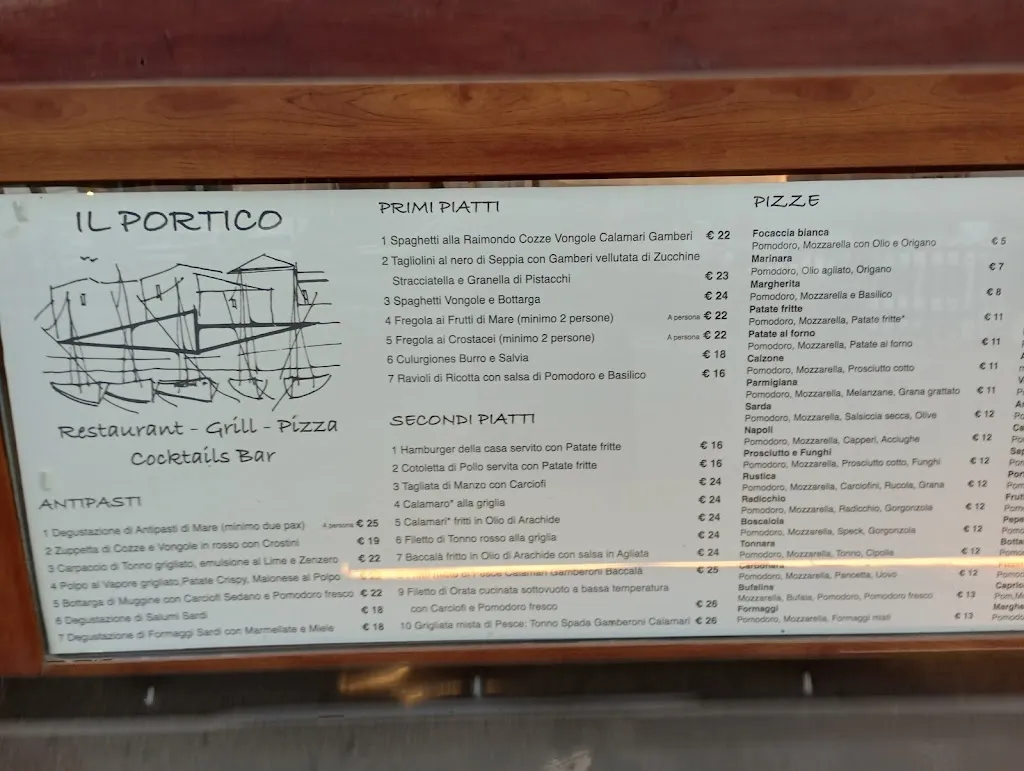 IL PORTICO
Restaurant - Grill - Pizza
Cocktails Bar
ANTIPASTI
1 Degustazione di Antipasti di Mare (minimo due pax) A persona € 25
2 Zuppetta di Cozze e Vongole in rosso con Crostini € 19
3 Carpaccio di Tonno grigliato, emulsione al Lime e Zenzero € 22
4 Polpo al Vapore grigliato Patate Crispy, Maionese al Polpo
5 Bottarga di Muggine con Carciofi Sedano e Pomodoro fresco € 22
6 Degustazione di Salumi Sardi € 18
7 Degustazione di Formaggi Sardi con Marmellate e Miele € 18
PRIMI PIATTI
1 Spaghetti alla Raimondo Cozze Vongole Calamari Gamberi € 22
2 Tagliolini al nero di Seppia con Gamberi vellutata di Zucchine
Stracciatella e Granella di Pistacchi € 23
3 Spaghetti Vongole e Bottarga € 24
4 Fregola ai Frutti di Mare (minimo 2 persone) A persona € 22
5 Fregola ai Crostacei (minimo 2 persone) A persona € 22
6 Culurgiones Burro e Salvia € 18
7 Ravioli di Ricotta con salsa di Pomodoro e Basilico € 16
SECONDI PIATTI
1 Hamburger della casa servito con Patate fritte € 16
2 Cotoletta di Pollo servita con Patate fritte € 16
3 Tagliata di Manzo con Carciofi € 24
4 Calamaro* alla griglia € 24
5 Calamari* fritti in Olio di Arachide € 24
6 Filetto di Tonno rosso alla griglia € 24
7 Baccalà fritto in Olio di Arachide con salsa in Agliata € 24
Calamari Gamberoni Baccalà € 25
9 Filetto di Orata cucinata sottovuoto a bassa temperatura
con Carciofi e Pomodoro fresco € 26
10 Grigliata mista di Pesce: Tonno Spada Gamberoni Calamari € 26
PIZZE
Focaccia bianca
Pomodoro, Mozzarella con Olio e Origano € 5
Marinara
Pomodoro, Olio agliato, Origano € 7
Margherita
Pomodoro, Mozzarella e Basilico € 8
Patate fritte
Pomodoro, Mozzarella, Patate fritte* € 11
Patate al forno
Pomodoro, Mozzarella, Patate al forno € 11
Calzone
Pomodoro, Mozzarella, Prosciutto cotto € 11
Parmigiana
Pomodoro, Mozzarella, Melanzane, Grana grattato € 11
Sarda
Pomodoro, Mozzarella, Salsiccia secca, Olive € 12
Napoli
Pomodoro, Mozzarella, Capperi, Acciughe € 12
Prosciutto e Funghi
Pomodoro, Mozzarella, Prosciutto cotto, Funghi € 12
Rustica
Pomodoro, Mozzarella, Carciofini, Rucola, Grana € 12
Radicchio
Pomodoro, Mozzarella, Radicchio, Gorgonzola € 12
Boscaiola
Pomodoro, Mozzarella, Speck, Gorgonzola € 12
Tonnara
Pomodoro, Mozzarella, Tonno, Cipolle € 12
Carbonara
Pomodoro, Mozzarella, Pancetta, Uovo € 12
Bufalina
Mozzarella, Bufala, Pomodoro, Pomodoro fresco € 13
Formaggi
Pomodoro, Mozzarella, Formaggi misti € 13